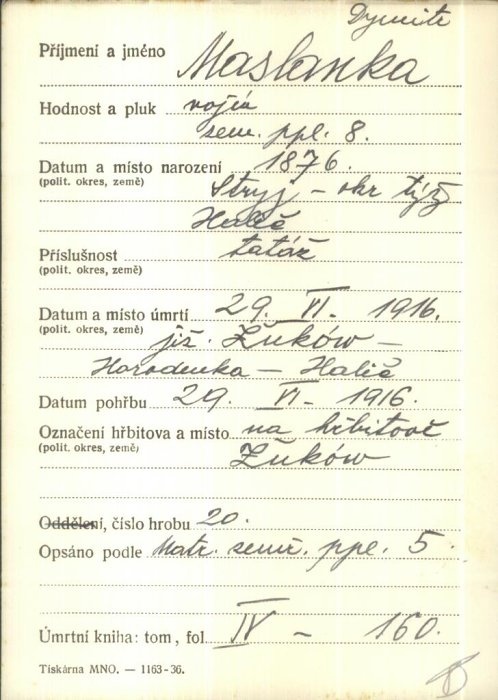 Dymitr
Příjmení a jméno Maslanka
Hodnost a pluk vojín
zem. ppl. 8.
Datum a místo narození 1876.
(polit. okres, země) Stryj – okr týž
Halič
Příslušnost tatáž
(polit. okres, země)
Datum a místo úmrtí 29. VI. 1916.
(polit. okres, země) již. Žuków –
Horodenka – Halič
Datum pohřbu 29. VI – 1916.
Označení hřbitova a místo na hřbitově
(polit. okres, země) Žuków
Oddělení, číslo hrobu 20.
Opsáno podle Matr. zem. ppl. 5.
Úmrtní kniha: tom, fol. IV – 160.
Tiskárna MNO. — 1163-36.